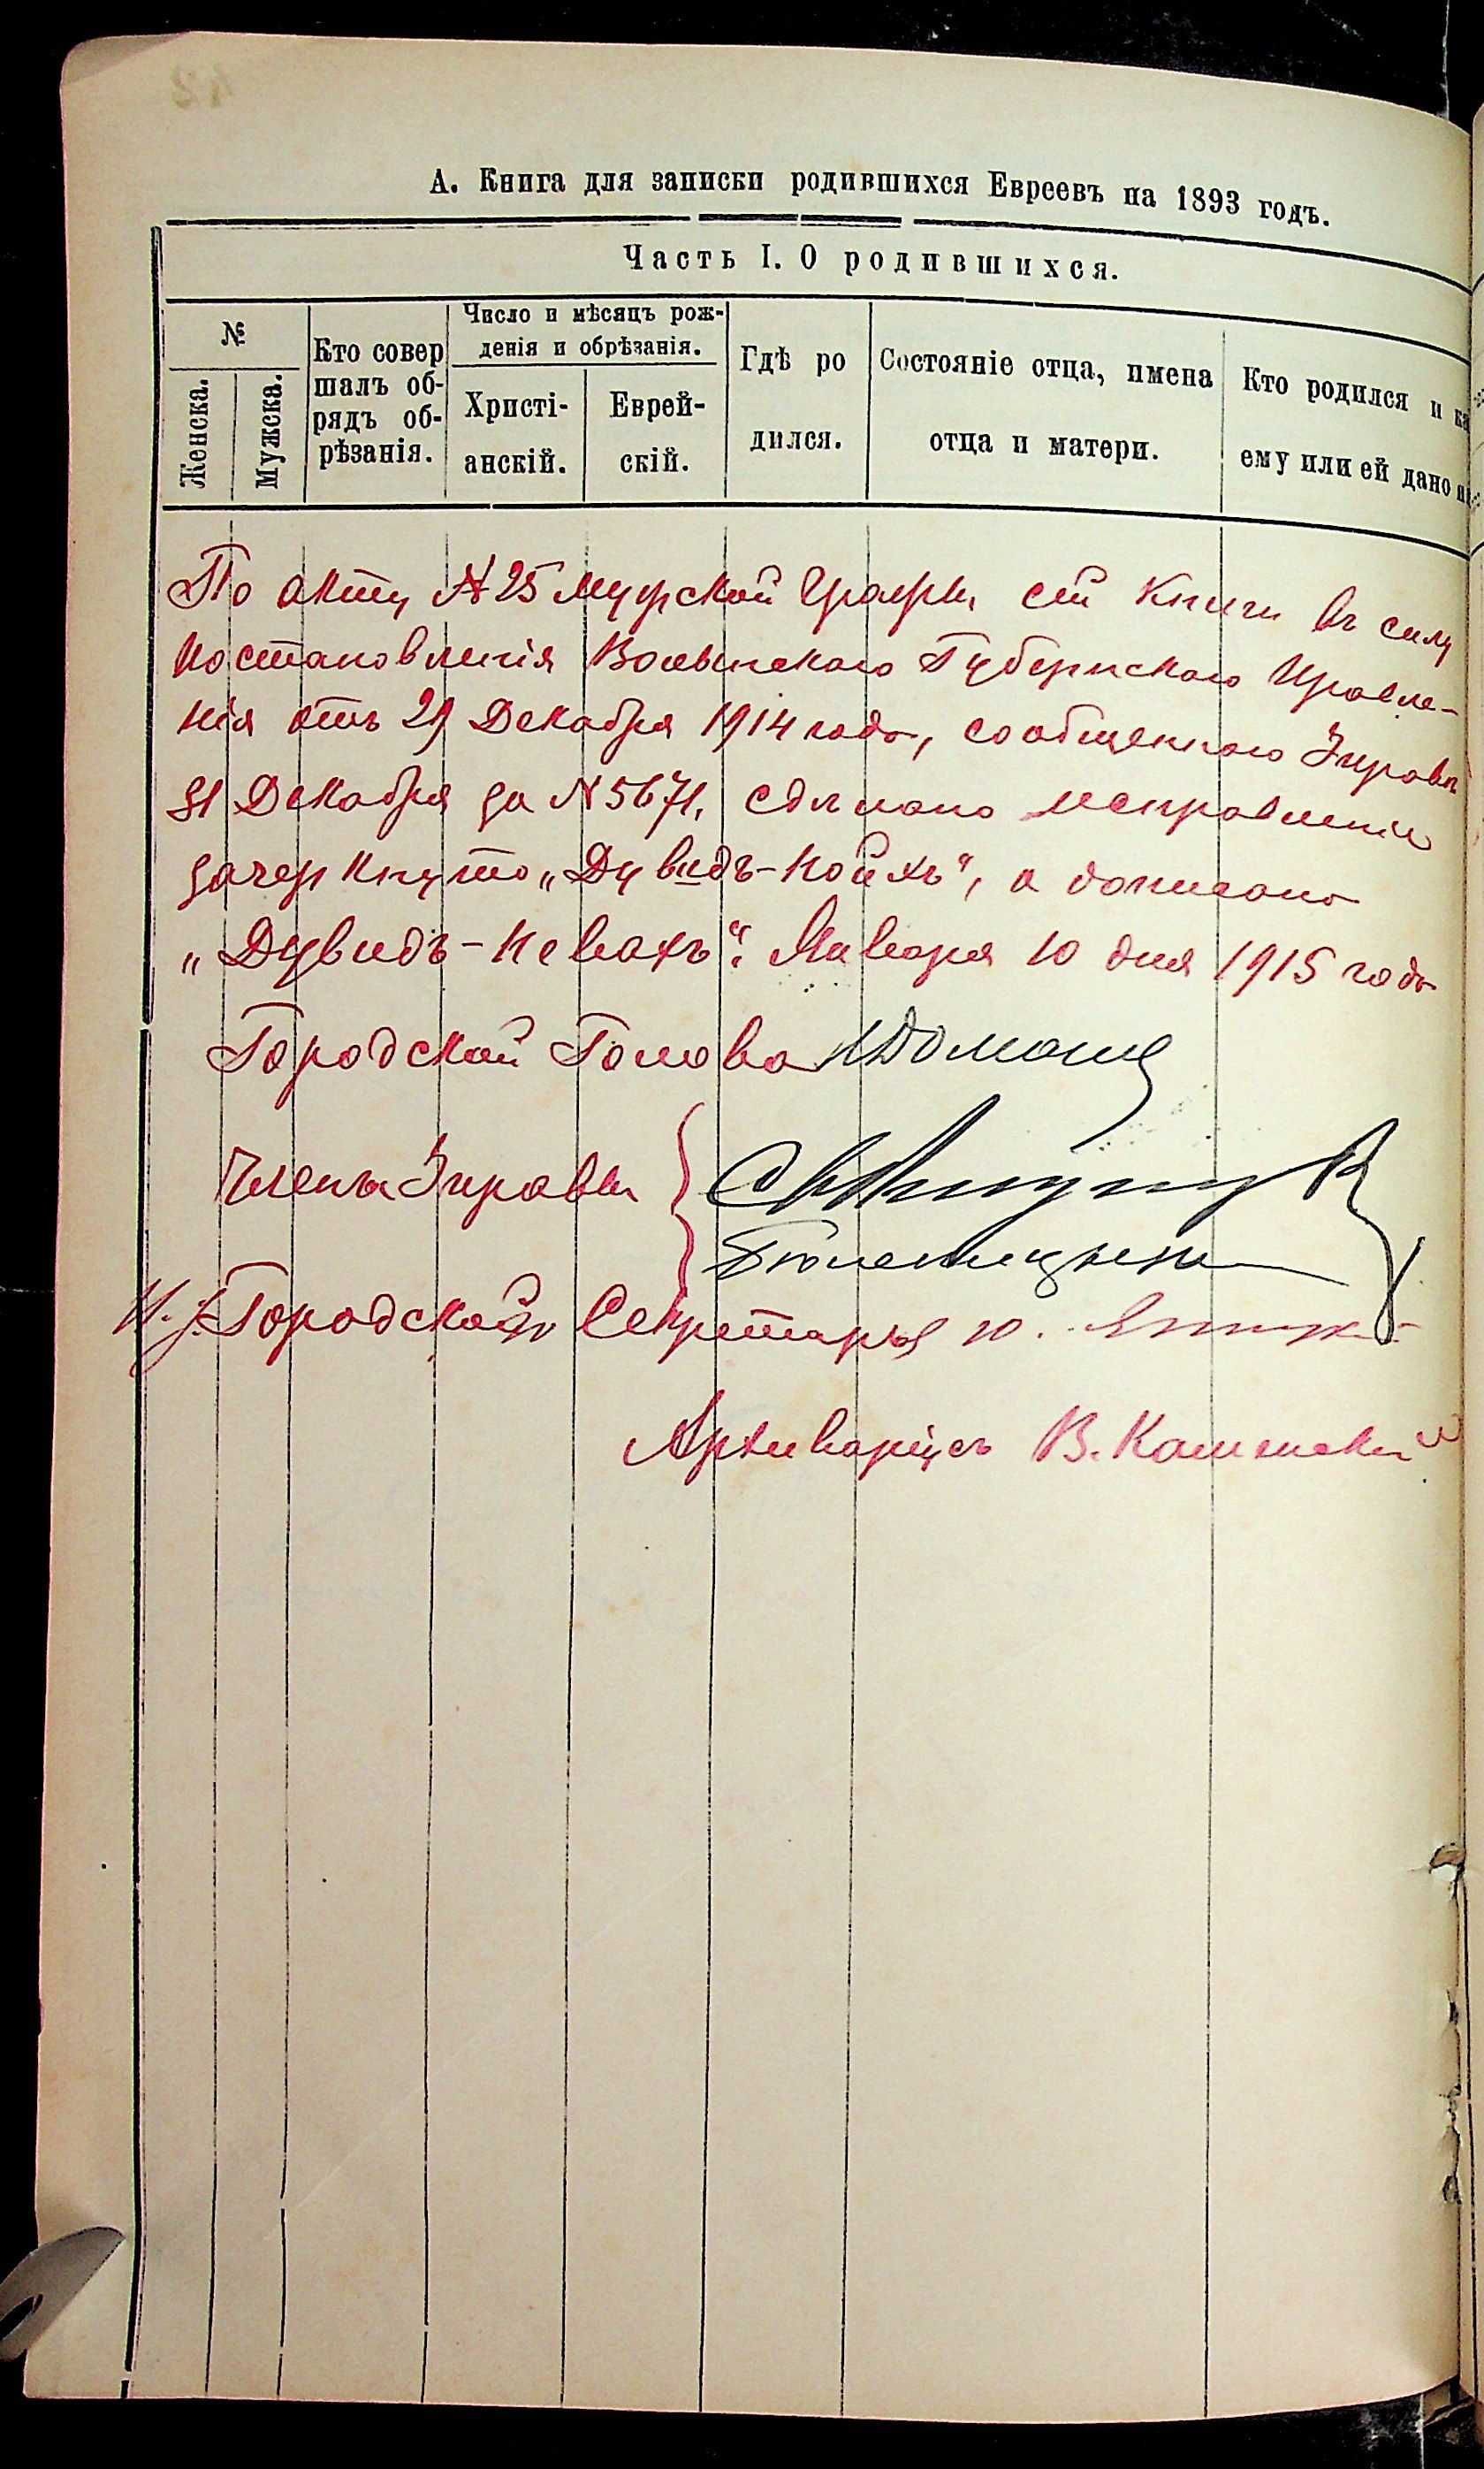 А. Книга для записки родившихся Евреевъ на 1893 годъ.
Часть I. О родившихся.
№
Женска.
Мужска.
Кто совер
шалъ об-
рядъ об-
рѣзанія.
Число и мѣсяцъ рож-
денія и обрѣзанія.
Христі-
анскій.
Еврей-
скій.
Гдѣ ро
дился.
Состояніе отца, имена
отца и матери.
Кто родился и ка
ему или ей дано
По акту № 25 мужской графы сей книги въ силу
постановленія Волынскаго Губернскаго Правле-
нія отъ 29 Декабря 1914 года, сообщеннаго Управѣ
31 Декабря за № 5671, сдѣлано исправленіе
зачеркнуто „Дувидъ-Койхъ“, а дописано
„Дувидъ-Невахъ“. Января 10 дня 1915 года
Городской Голова
Члены Управы
И. д. Городского Секретаря
Архиваріусъ В.